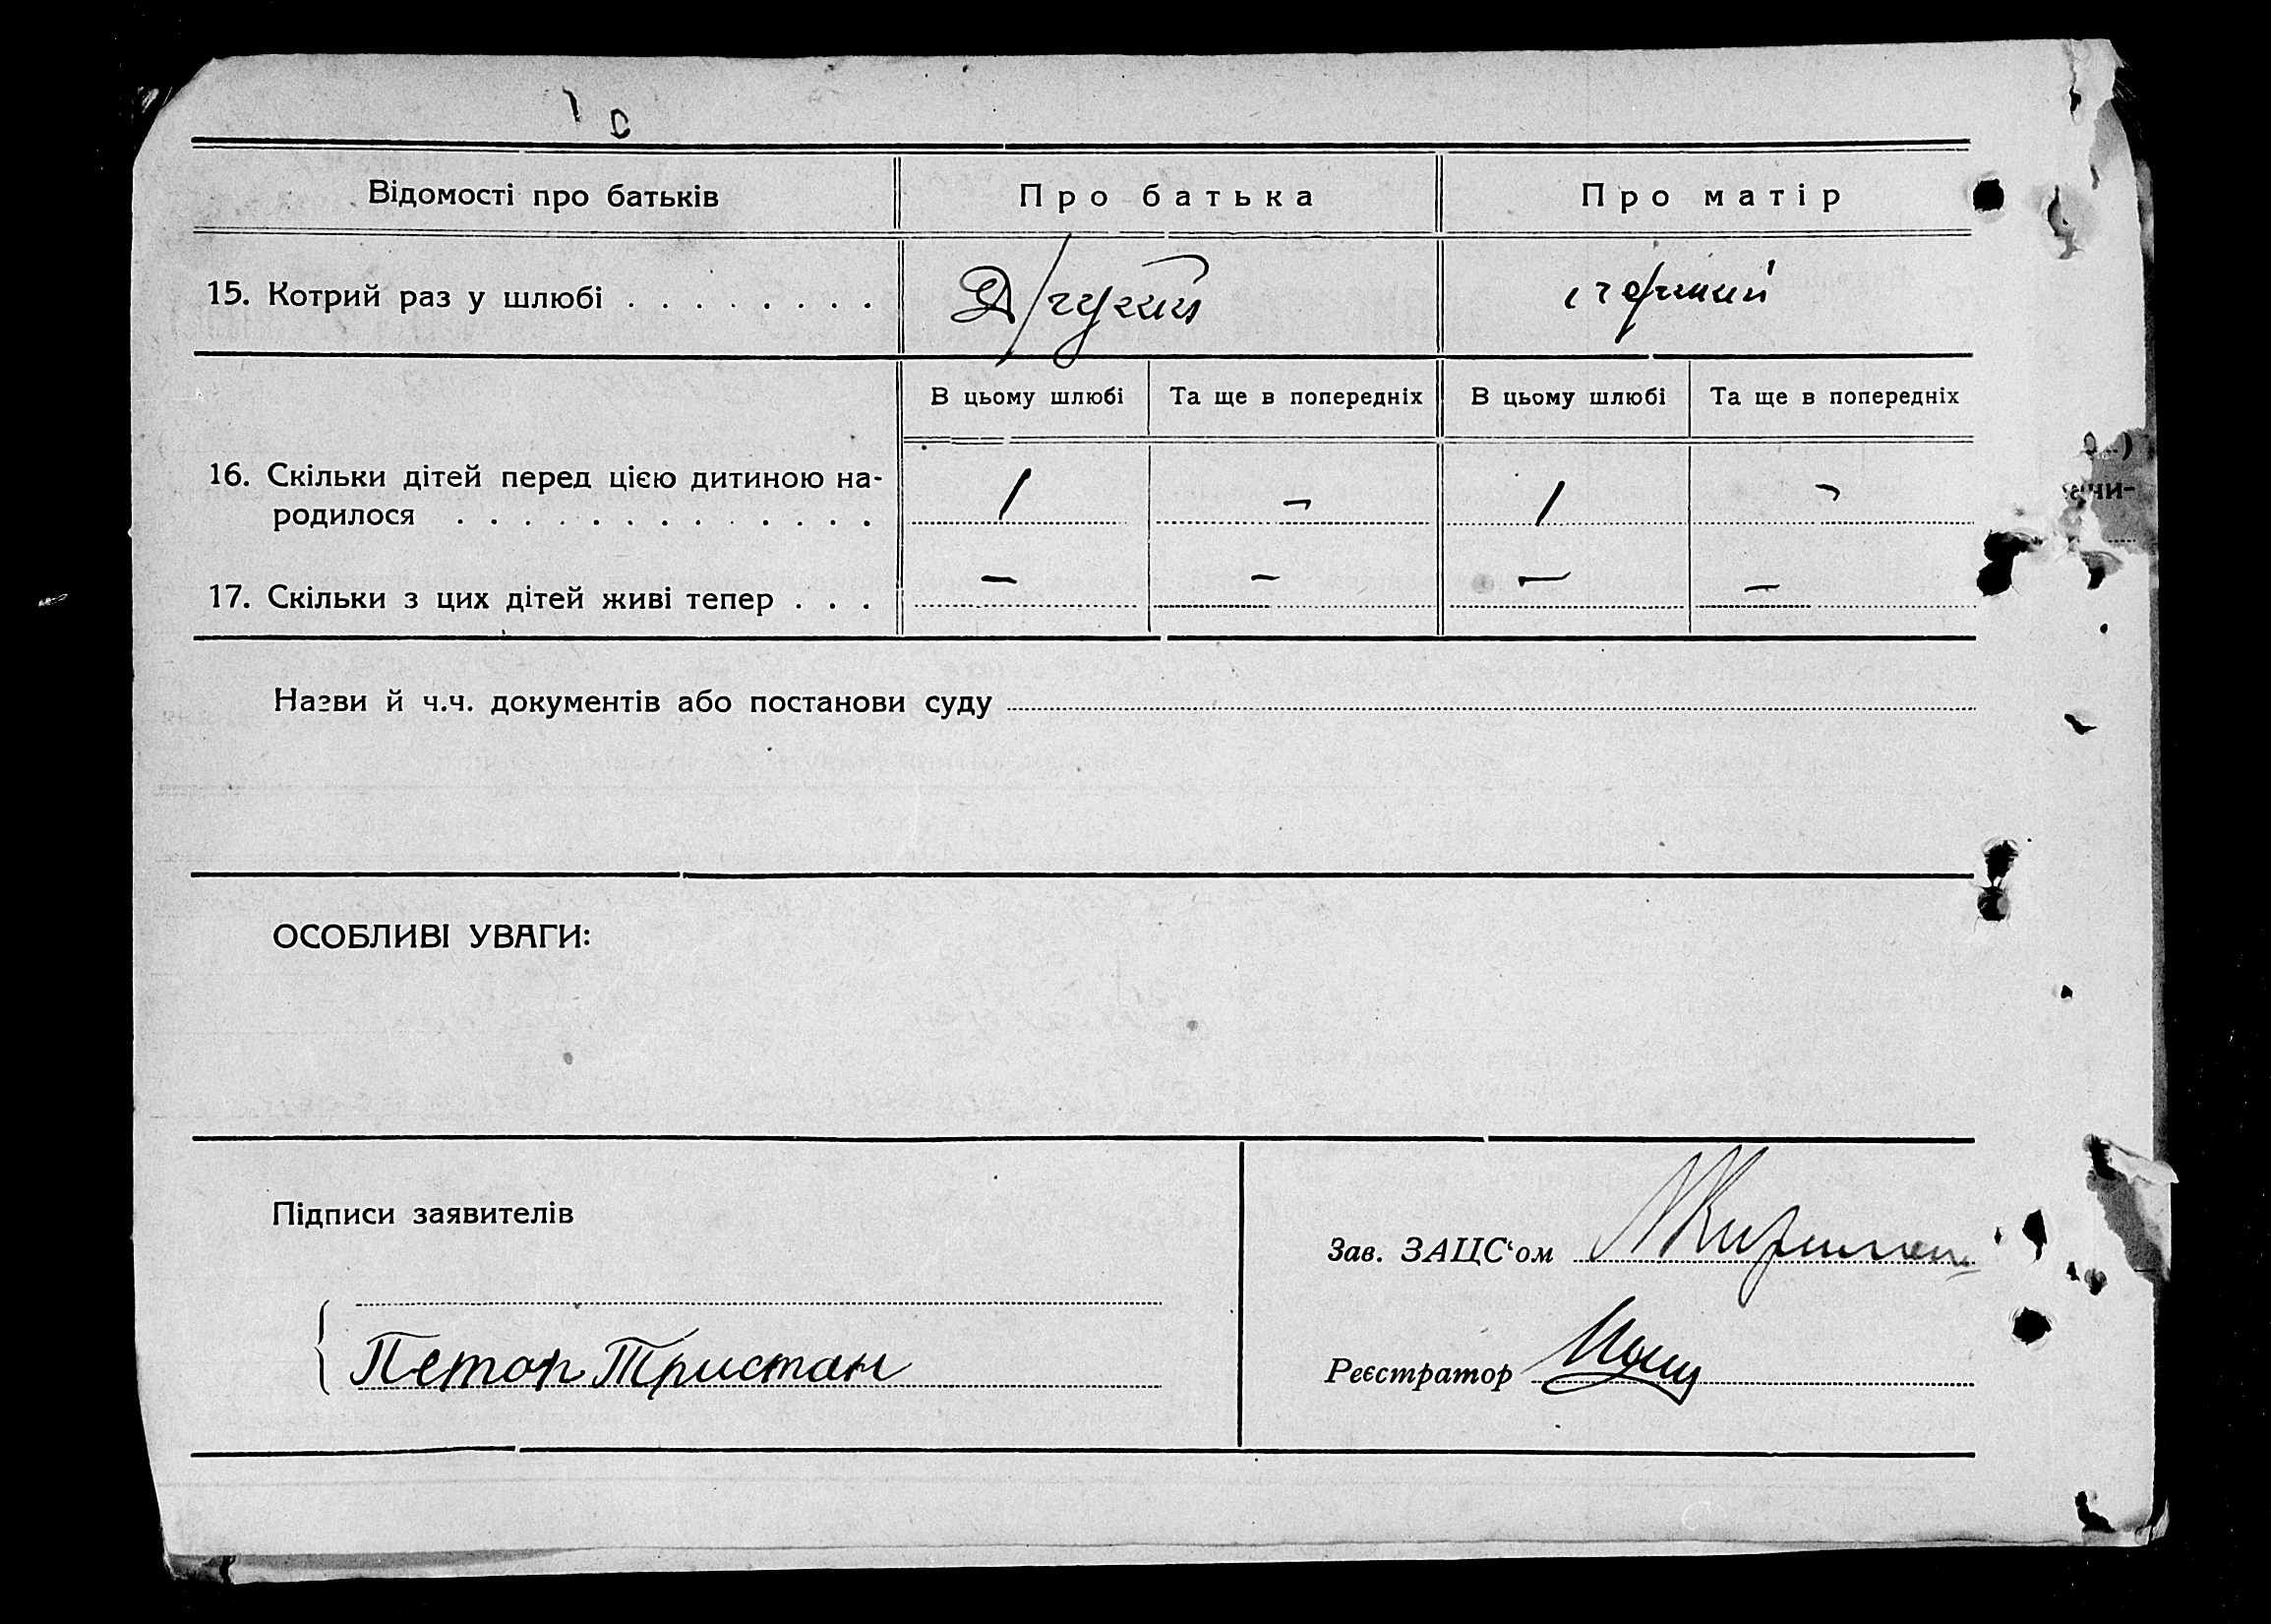 Відомості про батьків Про батька Про матір
15. Котрий раз у шлюбі . . . . . . . . Другий перший
В цьому шлюбі Та ще в попередніх В цьому шлюбі Та ще в попередніх
16. Скільки дітей перед цією дитиною на-
родилося . . . . . . . . . . . . . 1 – 1 –
17. Скільки з цих дітей живі тепер . . . – – – –
Назви й ч.ч. документів або постанови суду
ОСОБЛИВІ УВАГИ:
Підписи заявителів
Зав. ЗАЦС‘ом
Петон Тристан
Реєстратор